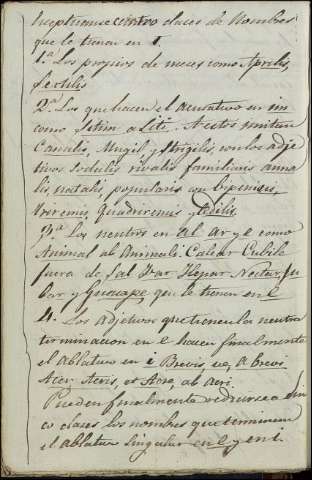 Exceptuanse cuatro clases de Nombres
que le tienen en i.
1.ª Los propios de meses como Aprilis,
Sextilis
2.ª Los que hacen el acusativo en im
como Sitim a Siti. A estos imitan
Canalis, Mugil y Strigilis, con los adje
tivos Sodalis rivalis familiaris anna
lis, natalis, popularis con bipennis,
triremis, Quadriremis y Aedilis.
3.ª los neutros en al ar y e como
Animal ab Animali. Calcar Cubile
fuera de Sal Par Hepar Nectar, Ju
bar y Gausape que le tienen en e
4. Los Adjetivos que tienen la neutra
terminacion en e hacen finalmente
el ablativo en i Brevis, ve, a brevi
Acer Acris, et Acre, ab acri.
Pueden finalmente reducirse a cin
co clases los nombres que terminan
el ablativo singular en e y en i.